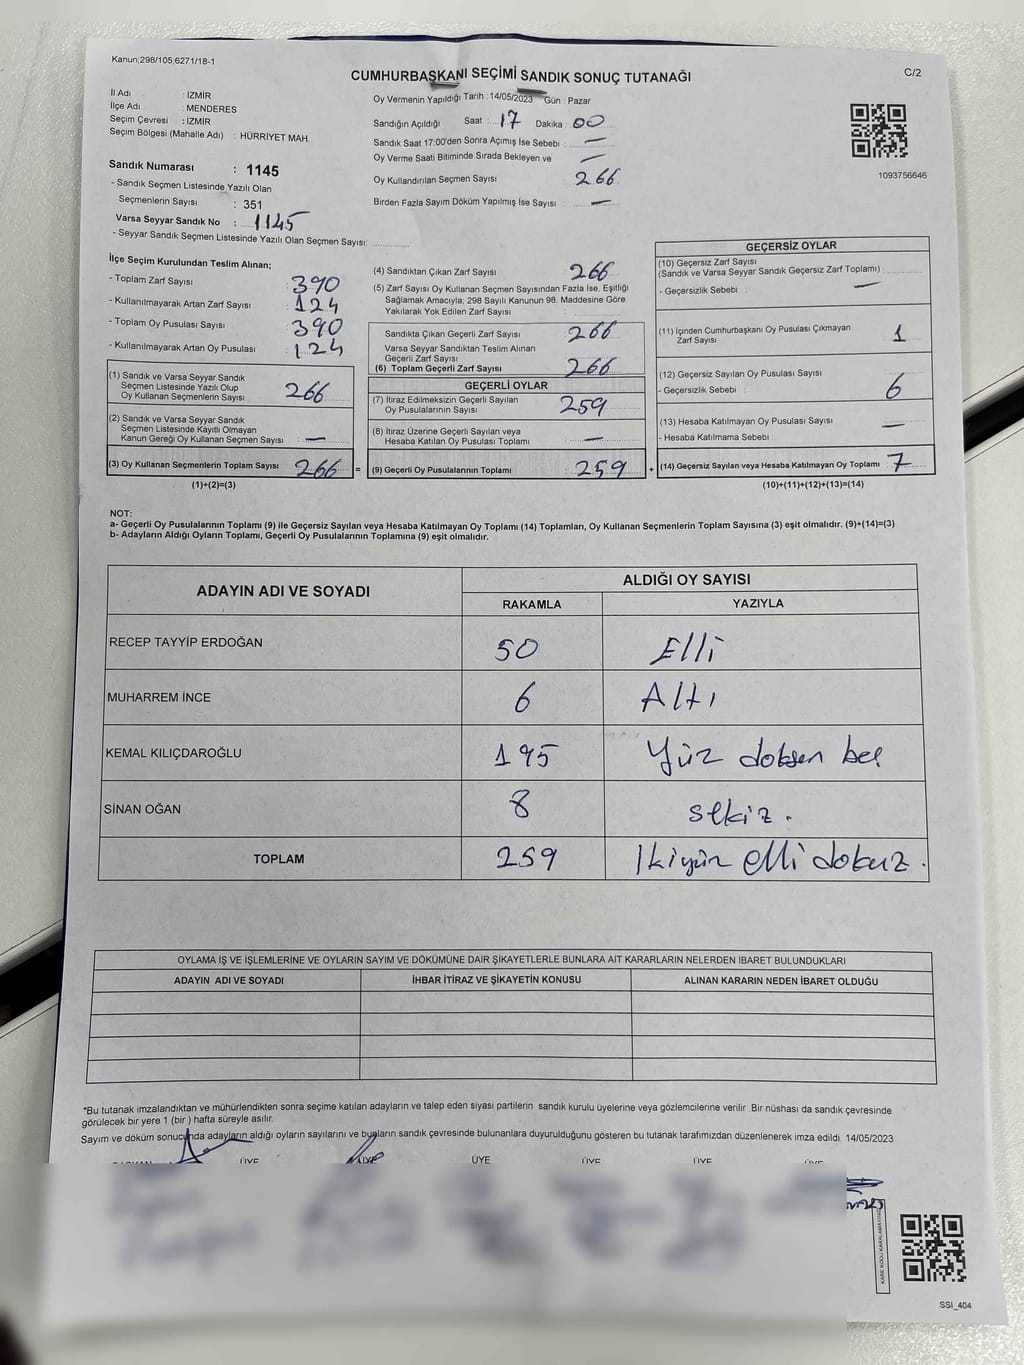 Kanun;298/105;6271/18-1
C/2
CUMHURBAŞKANI SEÇİMİ SANDIK SONUÇ TUTANAĞI
İl Adı : İZMİR
İlçe Adı : MENDERES
Seçim Çevresi : İZMİR
Seçim Bölgesi (Mahalle Adı) : HÜRRİYET MAH.
Sandık Numarası : 1145
- Sandık Seçmen Listesinde Yazılı Olan
Seçmenlerin Sayısı : 351
Varsa Seyyar Sandık No : 1145
- Seyyar Sandık Seçmen Listesinde Yazılı Olan Seçmen Sayısı:
Oy Vermenin Yapıldığı Tarih : 14/05/2023 Gün : Pazar
Sandığın Açıldığı Saat : 17 Dakika : 00
Sandık Saat 17:00'den Sonra Açımış İse Sebebi : —
Oy Verme Saati Bitiminde Sırada Bekleyen ve —
Oy Kullandırılan Seçmen Sayısı 266
Birden Fazla Sayım Döküm Yapılmış İse Sayısı : —
1093756646
İlçe Seçim Kurulundan Teslim Alınan;
- Toplam Zarf Sayısı : 390
- Kullanılmayarak Artan Zarf Sayısı : 124
- Toplam Oy Pusulası Sayısı : 390
- Kullanılmayarak Artan Oy Pusulası : 124
(1) Sandık ve Varsa Seyyar Sandık
Seçmen Listesinde Yazılı Olup
Oy Kullanan Seçmenlerin Sayısı : 266
(2) Sandık ve Varsa Seyyar Sandık
Seçmen Listesinde Kayıtlı Olmayan
Kanun Gereği Oy Kullanan Seçmen Sayısı : —
(3) Oy Kullanan Seçmenlerin Toplam Sayısı 266 =
(1)+(2)=(3)
(4) Sandıktan Çıkan Zarf Sayısı : 266
(5) Zarf Sayısı Oy Kullanan Seçmen Sayısından Fazla İse, Eşitliği
Sağlamak Amacıyla; 298 Sayılı Kanunun 98. Maddesine Göre
Yakılarak Yok Edilen Zarf Sayısı :
Sandıkta Çıkan Geçerli Zarf Sayısı : 266
Varsa Seyyar Sandıktan Teslim Alınan
Geçerli Zarf Sayısı
(6) Toplam Geçerli Zarf Sayısı : 266
GEÇERLİ OYLAR
(7) İtiraz Edilmeksizin Geçerli Sayılan
Oy Pusulalarının Sayısı : 259
(8) İtiraz Üzerine Geçerli Sayılan veya
Hesaba Katılan Oy Pusulası Toplamı : —
(9) Geçerli Oy Pusulalarının Toplamı : 259 +
GEÇERSİZ OYLAR
(10) Geçersiz Zarf Sayısı
(Sandık ve Varsa Seyyar Sandık Geçersiz Zarf Toplamı) :
- Geçersizlik Sebebi : —
(11) İçinden Cumhurbaşkanı Oy Pusulası Çıkmayan
Zarf Sayısı : 1
(12) Geçersiz Sayılan Oy Pusulası Sayısı
- Geçersizlik Sebebi : 6
(13) Hesaba Katılmayan Oy Pusulası Sayısı : —
- Hesaba Katılmama Sebebi :
(14) Geçersiz Sayılan veya Hesaba Katılmayan Oy Toplamı : 7
(10)+(11)+(12)+(13)=(14)
NOT:
a- Geçerli Oy Pusulalarının Toplamı (9) ile Geçersiz Sayılan veya Hesaba Katılmayan Oy Toplamı (14) Toplamları, Oy Kullanan Seçmenlerin Toplam Sayısına (3) eşit olmalıdır. (9)+(14)=(3)
b- Adayların Aldığı Oyların Toplamı, Geçerli Oy Pusulalarının Toplamına (9) eşit olmalıdır.
ADAYIN ADI VE SOYADI
ALDIĞI OY SAYISI
RAKAMLA YAZIYLA
RECEP TAYYİP ERDOĞAN 50 Elli
MUHARREM İNCE 6 Altı
KEMAL KILIÇDAROĞLU 195 Yüz doksen beş
SİNAN OĞAN 8 sekiz.
TOPLAM 259 İkiyüz elli dokuz.
OYLAMA İŞ VE İŞLEMLERİNE VE OYLARIN SAYIM VE DÖKÜMÜNE DAİR ŞİKAYETLERLE BUNLARA AİT KARARLARIN NELERDEN İBARET BULUNDUKLARI
ADAYIN ADI VE SOYADI İHBAR İTİRAZ VE ŞİKAYETİN KONUSU ALINAN KARARIN NEDEN İBARET OLDUĞU
*Bu tutanak imzalandıktan ve mühürlendikten sonra seçime katılan adayların ve talep eden siyasi partilerin sandık kurulu üyelerine veya gözlemcilerine verilir .Bir nüshası da sandık çevresinde
görülecek bir yere 1 (bir ) hafta süreyle asılır.
Sayım ve döküm sonucunda adayların aldığı oyların sayılarını ve bunların sandık çevresinde bulunanlara duyurulduğunu gösteren bu tutanak tarafımızdan düzenlenerek imza edildi. 14/05/2023
BAŞKAN ÜYE ÜYE ÜYE ÜYE ÜYE ÜYE
KARE KODU KARALAMAYINIZ
SSİ_404